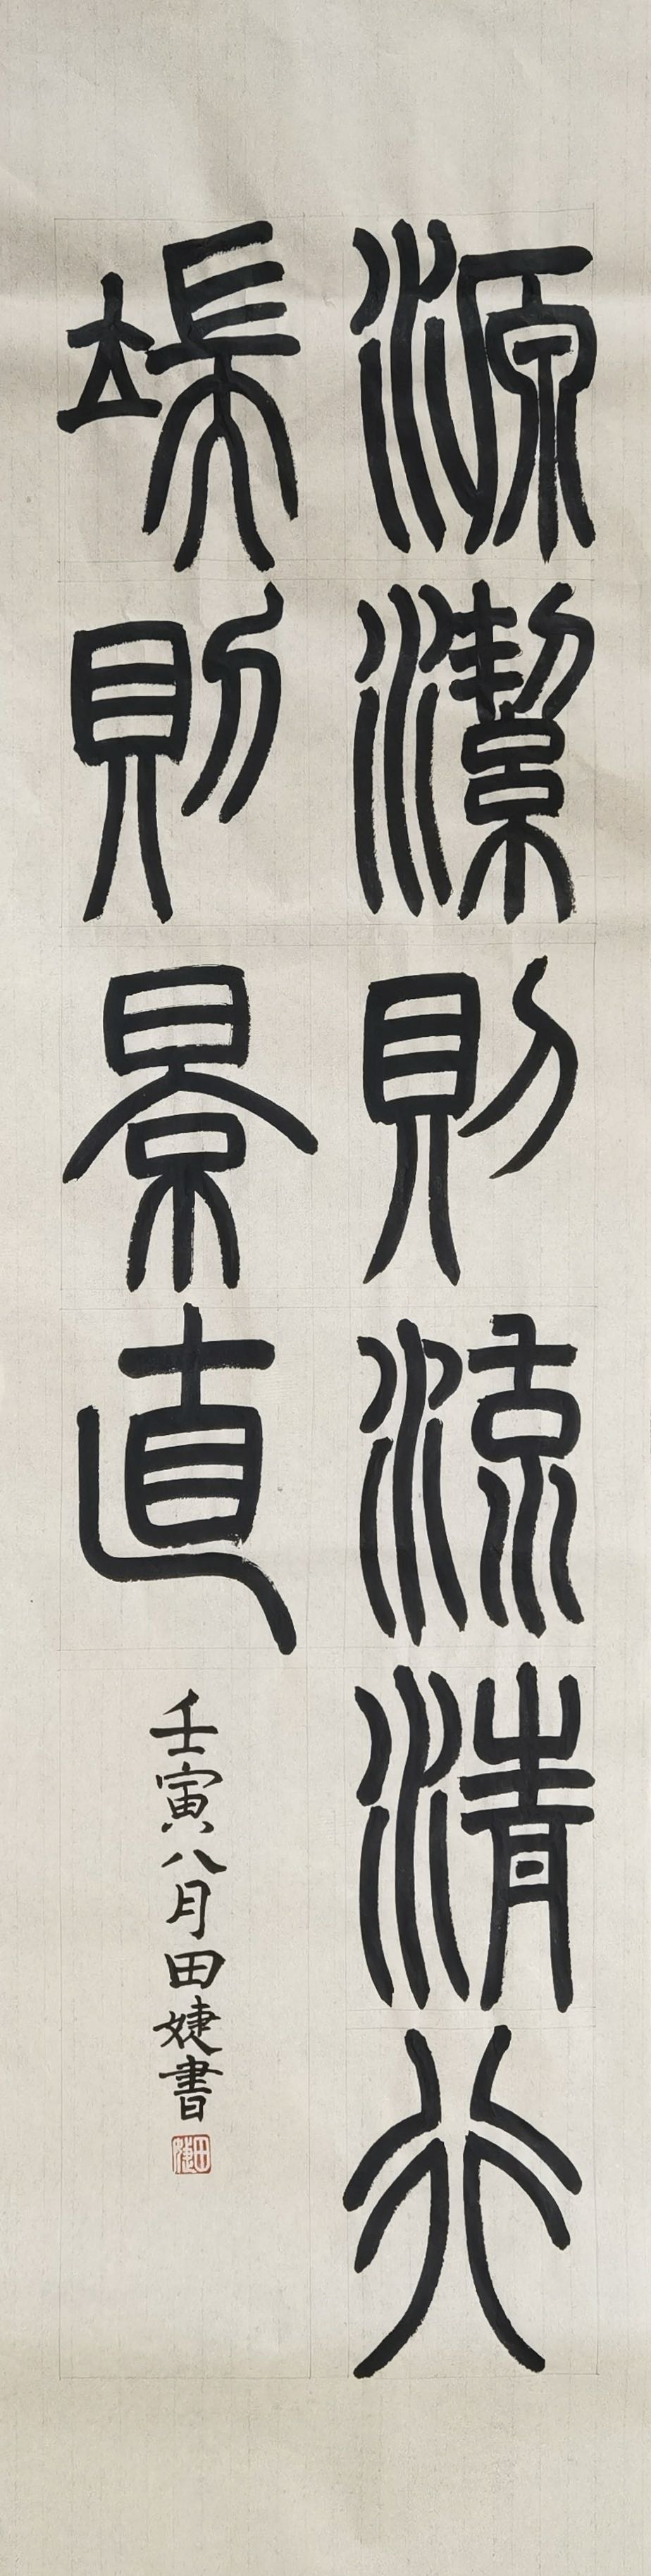 源潔則流清行
端則景直
壬寅八月田婕書
田婕